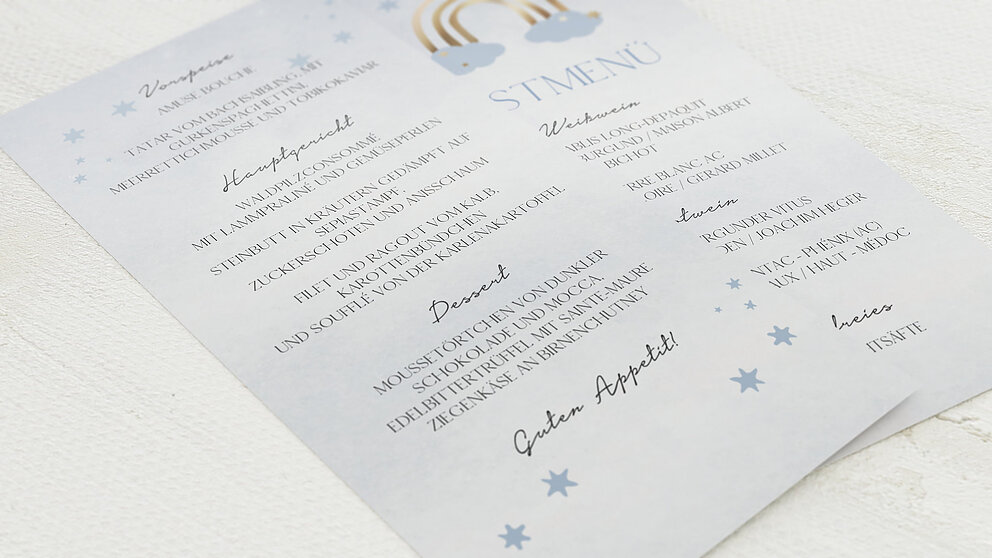 Vorspeise
AMUSE BOUCHE
TATAR VOM BACHSAIBLING, MIT
GURKENSPAGHETTINI,
MEERRETTICHMOUSSE UND TOBIKOKAVIAR
Hauptgericht
WALDPILZCONSOMMÉ
MIT LAMMPRALINE UND GEMÜSEPERLEN
STEINBUTT IN KRÄUTERN GEDÄMPFT AUF
SEPIASTAMPF,
ZUCKERSCHOTEN UND ANISSCHAUM
FILET UND RAGOUT VOM KALB,
KAROTTENBÜNDCHEN
UND SOUFFLÉ VON DER KARLENAKARTOFFEL
Dessert
MOUSSETÖRTCHEN VON DUNKLER
SCHOKOLADE UND MOCCA,
EDELBITTERTRÜFFEL MIT SAINTE-MAURE
ZIEGENKÄSE AN BIRNENCHUTNEY
Guten Appetit!
STMENÜ
Weißwein
ABLIS LONG-DEPAQUIT
BURGUND / MAISON ALBERT
BICHOT
RRE BLANC AC
OIRE / GERARD MILLET
twein
RGUNDER VITUS
DEN / JOACHIM HEGER
NTAC - PHÉNIX (AC)
AUX / HAUT - MÉDOC
freies
ITSÄFTE